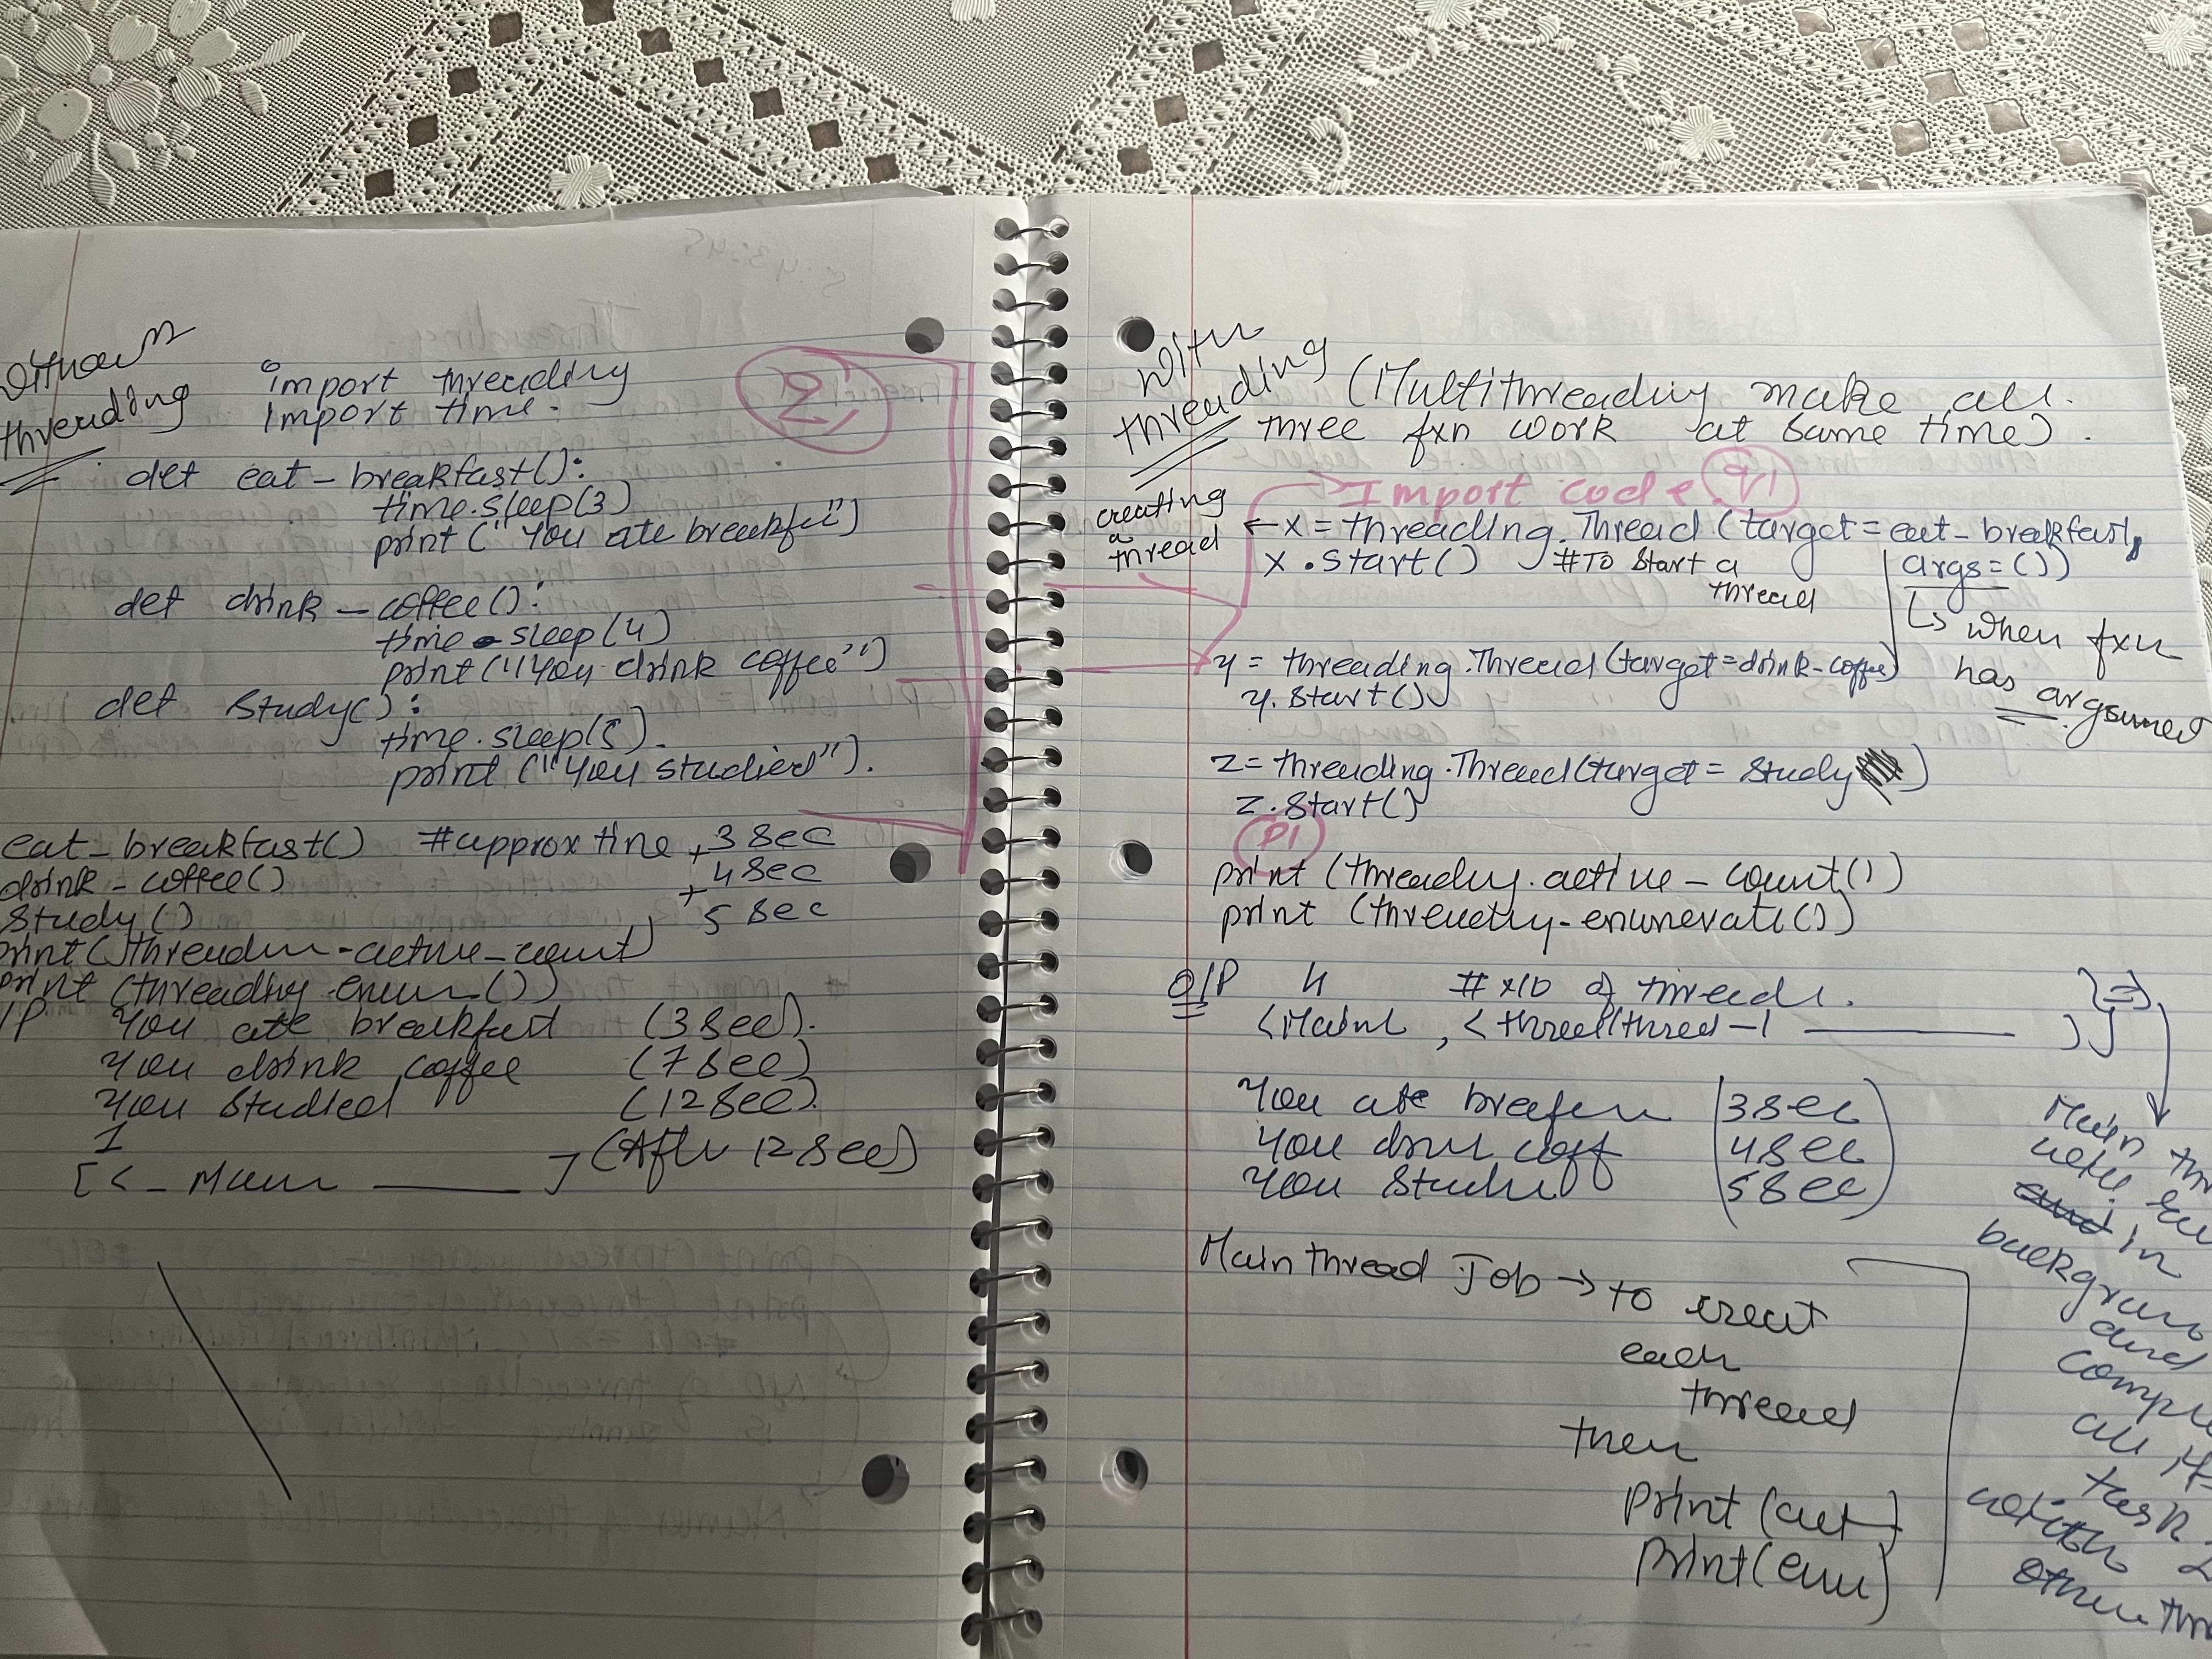 without
threading
import threading
import time.
def eat_breakfast():
time.sleep(3)
print ("You ate breakfast")
def drink_coffee():
time.sleep(4)
print ("You drink coffee")
def study():
time.sleep(5)
print ("You studied").
eat_breakfast() #approx time 3 sec
drink_coffee() + 4 sec
study() + 5 sec
print (threading.active_count)
print (threading.enum())
You ate breakfast (3 sec).
You drink coffee (7 sec)
You studied (12 sec).
1
[<_Main ] (After 12 sec)
with
threading
(Multithreading make all
three fxn work at same time).
Import code
creating
a
thread
x = threading.Thread(target=eat_breakfast,
args=())
x.start() #To start a
thread
when fxn
has argsumed
y = threading.Thread(target=drink_coffee)
y.start()
z = threading.Thread(target=study)
z.start()
P1
print (threading.active_count())
print (threading.enumerate())
O/P 4 # no of threads.
<Main , <thread(thred-1 )]
You ate (3 sec
You coff 4 sec
You 5 sec)
Main thread Job → to creat
each
thread
then
print (act)
print (enu)
Main
in
and
all
task
other